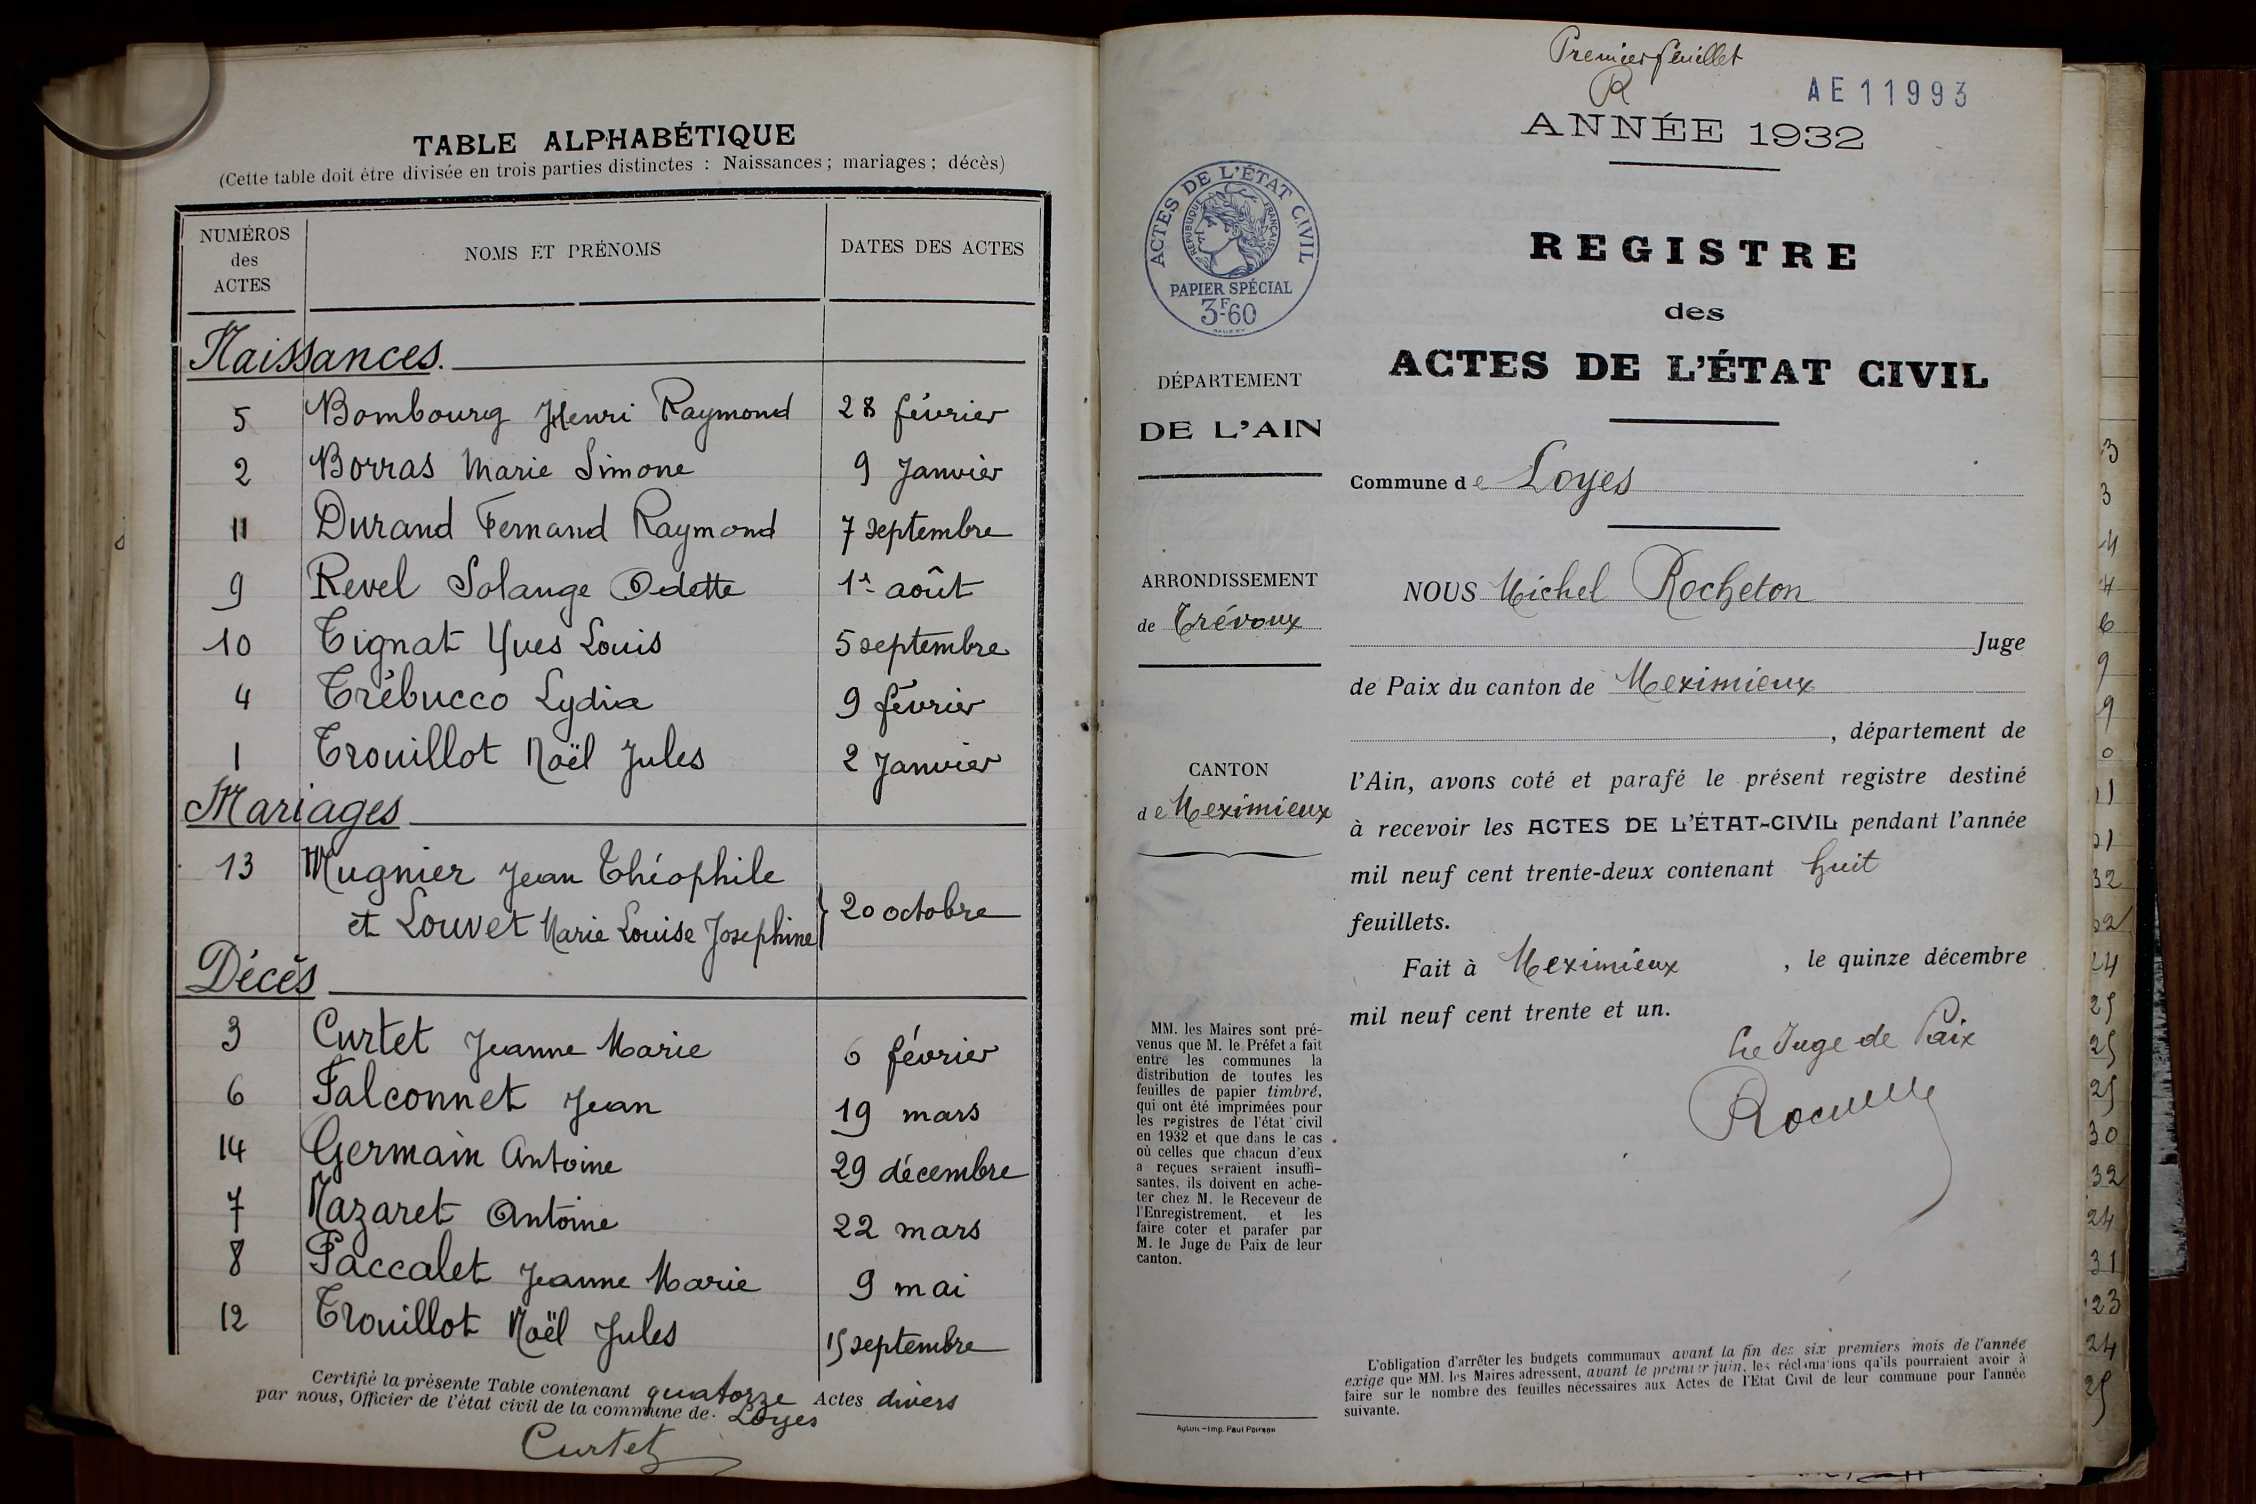 TABLE ALPHABÉTIQUE
(Cette table doit être divisée en trois parties distinctes : Naissances ; mariages ; décès)
NUMÉROS des ACTES NOMS ET PRÉNOMS DATES DES ACTES
Naissances.
5 Bombourg Henri Raymond 28 février
2 Borras Marie Simone 9 Janvier
11 Durand Fernand Raymond 7 septembre
9 Revel Solange Odette 1er août
10 Tignat Yves Louis 5 septembre
4 Trébucco Lydia 9 février
1 Trouillot Noël Jules 2 Janvier
Mariages
13 Mugnier Jean Théophile
et Louvet Marie Louise Josephine } 20 octobre
Décès
3 Curtet Jeanne Marie 6 février
6 Falconnet Jean 19 mars
14 Germain Antoine 29 décembre
7 Nazaret Antoine 22 mars
8 Paccalet Jeanne Marie 9 mai
12 Trouillot Noël Jules 15 septembre
Certifié la présente Table contenant quatorze Actes divers
par nous, Officier de l'état civil de la commune de Loyes
Curtet
Premier feuillet
R
AE11993
ANNÉE 1932
REGISTRE
des
ACTES DE L'ÉTAT CIVIL
ACTES DE L'ÉTAT CIVIL
RÉPUBLIQUE FRANÇAISE
PAPIER SPÉCIAL
3F.60
DÉPARTEMENT
DE L'AIN
ARRONDISSEMENT
de Trévoux
CANTON
de Meximieux
MM. les Maires sont pré-
venus que M. le Préfet a fait
entre les communes la
distribution de toutes les
feuilles de papier timbré,
qui ont été imprimées pour
les registres de l'état civil
en 1932 et que dans le cas
où celles que chacun d'eux
a reçues seraient insuffi-
santes, ils doivent en ache-
ter chez M. le Receveur de
l'Enregistrement, et les
faire coter et parafer par
M. le Juge de Paix de leur
canton.
Commune de Loyes
NOUS Michel Rocheton
Juge
de Paix du canton de Meximieux
, département de
l'Ain, avons coté et parafé le présent registre destiné
à recevoir les ACTES DE L'ÉTAT-CIVIL pendant l'année
mil neuf cent trente-deux contenant huit
feuillets.
Fait à Meximieux , le quinze décembre
mil neuf cent trente et un.
Le Juge de Paix
L'obligation d'arrêter les budgets communaux avant la fin des six premiers mois de l'année
exige que MM. les Maires adressent, avant le premier juin, les réclamations qu'ils pourraient avoir à
faire sur le nombre des feuilles nécessaires aux Actes de l'Etat Civil de leur commune pour l'année
suivante.
3
3
4
4
6
9
9
0
11
21
32
32
24
25
25
25
30
32
24
31
23
24
25